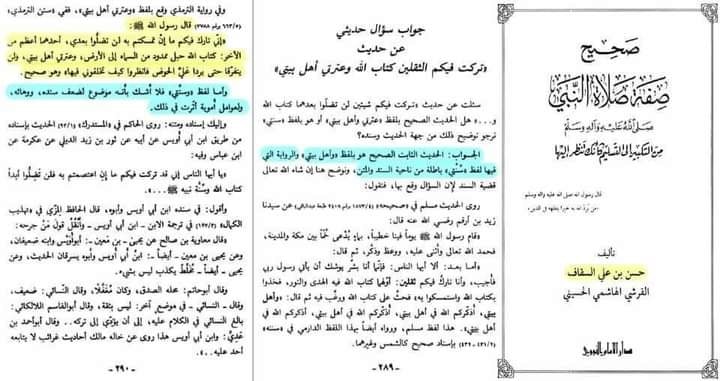 صحيح
صفة صلاة النبي
صلى الله عليه وآله وسلم
من التكبير إلى التسليم كأنك تنظر إليها
قال رسول الله صلى الله عليه وآله وسلم
«من يرد الله به خيراً يفقهه في الدين»
تأليف
حسن بن علي السقاف
القرشي الهاشمي الحسيني
دار الإمام النووي
جواب سؤال حديثي
عن حديث
«تركت فيكم الثقلين كتاب الله وعترتي أهل بيتي»
سئلت عن حديث «تركت فيكم شيئين لن تضلوا بعدهما كتاب الله
و....» هل الحديث الصحيح بلفظ «عترتي وأهل بيتي» أو هو بلفظ «سنتي»
نرجو توضيح ذلك من جهة الحديث وسنده؟
الجواب: الحديث الثابت الصحيح هو بلفظ «وأهل بيتي» والرواية التي
فيها لفظ «سنتي» باطلة من ناحية السند والمتن، ونوضح هنا إن شاء الله تعالى
قضية السند لأن السؤال وقع بها، فنقول:
روى الحديث مسلم في «صحيحه» عن سيدنا
زيد بن أرقم رضي الله عنه قال:
«قام رسول الله ﷺ يوماً فينا خطيباً، بماء يُدعى خُماً بين مكة والمدينة،
فحمد الله تعالى وأثنى عليه، ووعظ وذكر، ثم قال:
«أما بعد: ألا أيها الناس: فإنما أنا بشر يوشك أن يأتي رسول ربي
فأجيب، وأنا تارك فيكم ثقلين: أولهما كتاب الله فيه الهدى والنور، فخذوا
بكتاب الله واستمسكوا به» فحث على كتاب الله ورغب فيه، ثم قال:
«وأهل بيتي، أذكركم الله في أهل بيتي، أذكركم الله في أهل بيتي، أذكركم الله
في أهل بيتي». هذا لفظ مسلم، ورواه أيضاً بهذا اللفظ الدارمي في «سننه»
(٤٣١/٢ - ٤٣٢) بإسناد صحيح كالشمس وغيرهما.
- ٢٨٩ -
وفي رواية الترمذي وقع بلفظ «وعترتي أهل بيتي»، ففي سنن الترمذي
(٦٦٣/٥ برقم ٣٧٨٨) قال رسول الله ﷺ:
«إني تارك فيكم ما إن تمسكتم به لن تضلوا بعدي، أحدهما أعظم من
الآخر: كتاب الله حبل ممدود من السماء إلى الأرض، وعترتي أهل بيتي، ولن
يتفرقا حتى يردا علي الحوض فانظروا كيف تخلفوني فيها» وهو صحيح.
وأما لفظ «وسنتي» فلا أشك بأنه موضوع لضعف سنده، ووهائه،
ولعوامل أموية أثرت في ذلك.
وإليك إسناده ومتنه: روى الحاكم في «المستدرك» (٩٣/١) الحديث بإسناده
من طريق ابن أبي أويس عن أبيه عن ثور بن زيد الديلي عن عكرمة عن
ابن عباس وفيه:
«يا أيها الناس إني قد تركت فيكم ما إن اعتصمتم به فلن تضلوا أبداً
كتاب الله وسنة نبيه ﷺ».
وأقول: في سنده ابن أبي أويس وأبوه، قال الحافظ المزي في «تهذيب
الكمال» (١٢٧/٣) في ترجمة الابن - ابن أبي أويس - وأنقل قول من جرحه:
قال معاوية بن صالح عن يحيى - بن معين -: أبو أويس وابنه ضعيفان،
وعن يحيى بن معين - أيضاً -: ابن أبي أويس وأبوه يسرقان الحديث، وعن
يحيى - أيضاً -: مخلط يكذب ليس بشيء.
وقال أبو حاتم: محله الصدق، وكان مغفلاً، وقال النسائي: ضعيف،
وقال - النسائي - في موضع آخر: ليس بثقة. وقال أبو القاسم اللالكائي:
بالغ النسائي في الكلام عليه، إلى أن يؤدي إلى تركه.. وقال أبو أحمد بن
عدي: وابن أبي أويس هذا روى عن خاله مالك أحاديث غرائب لا يتابعه
أحد عليه...».
- ٢٩٠ -